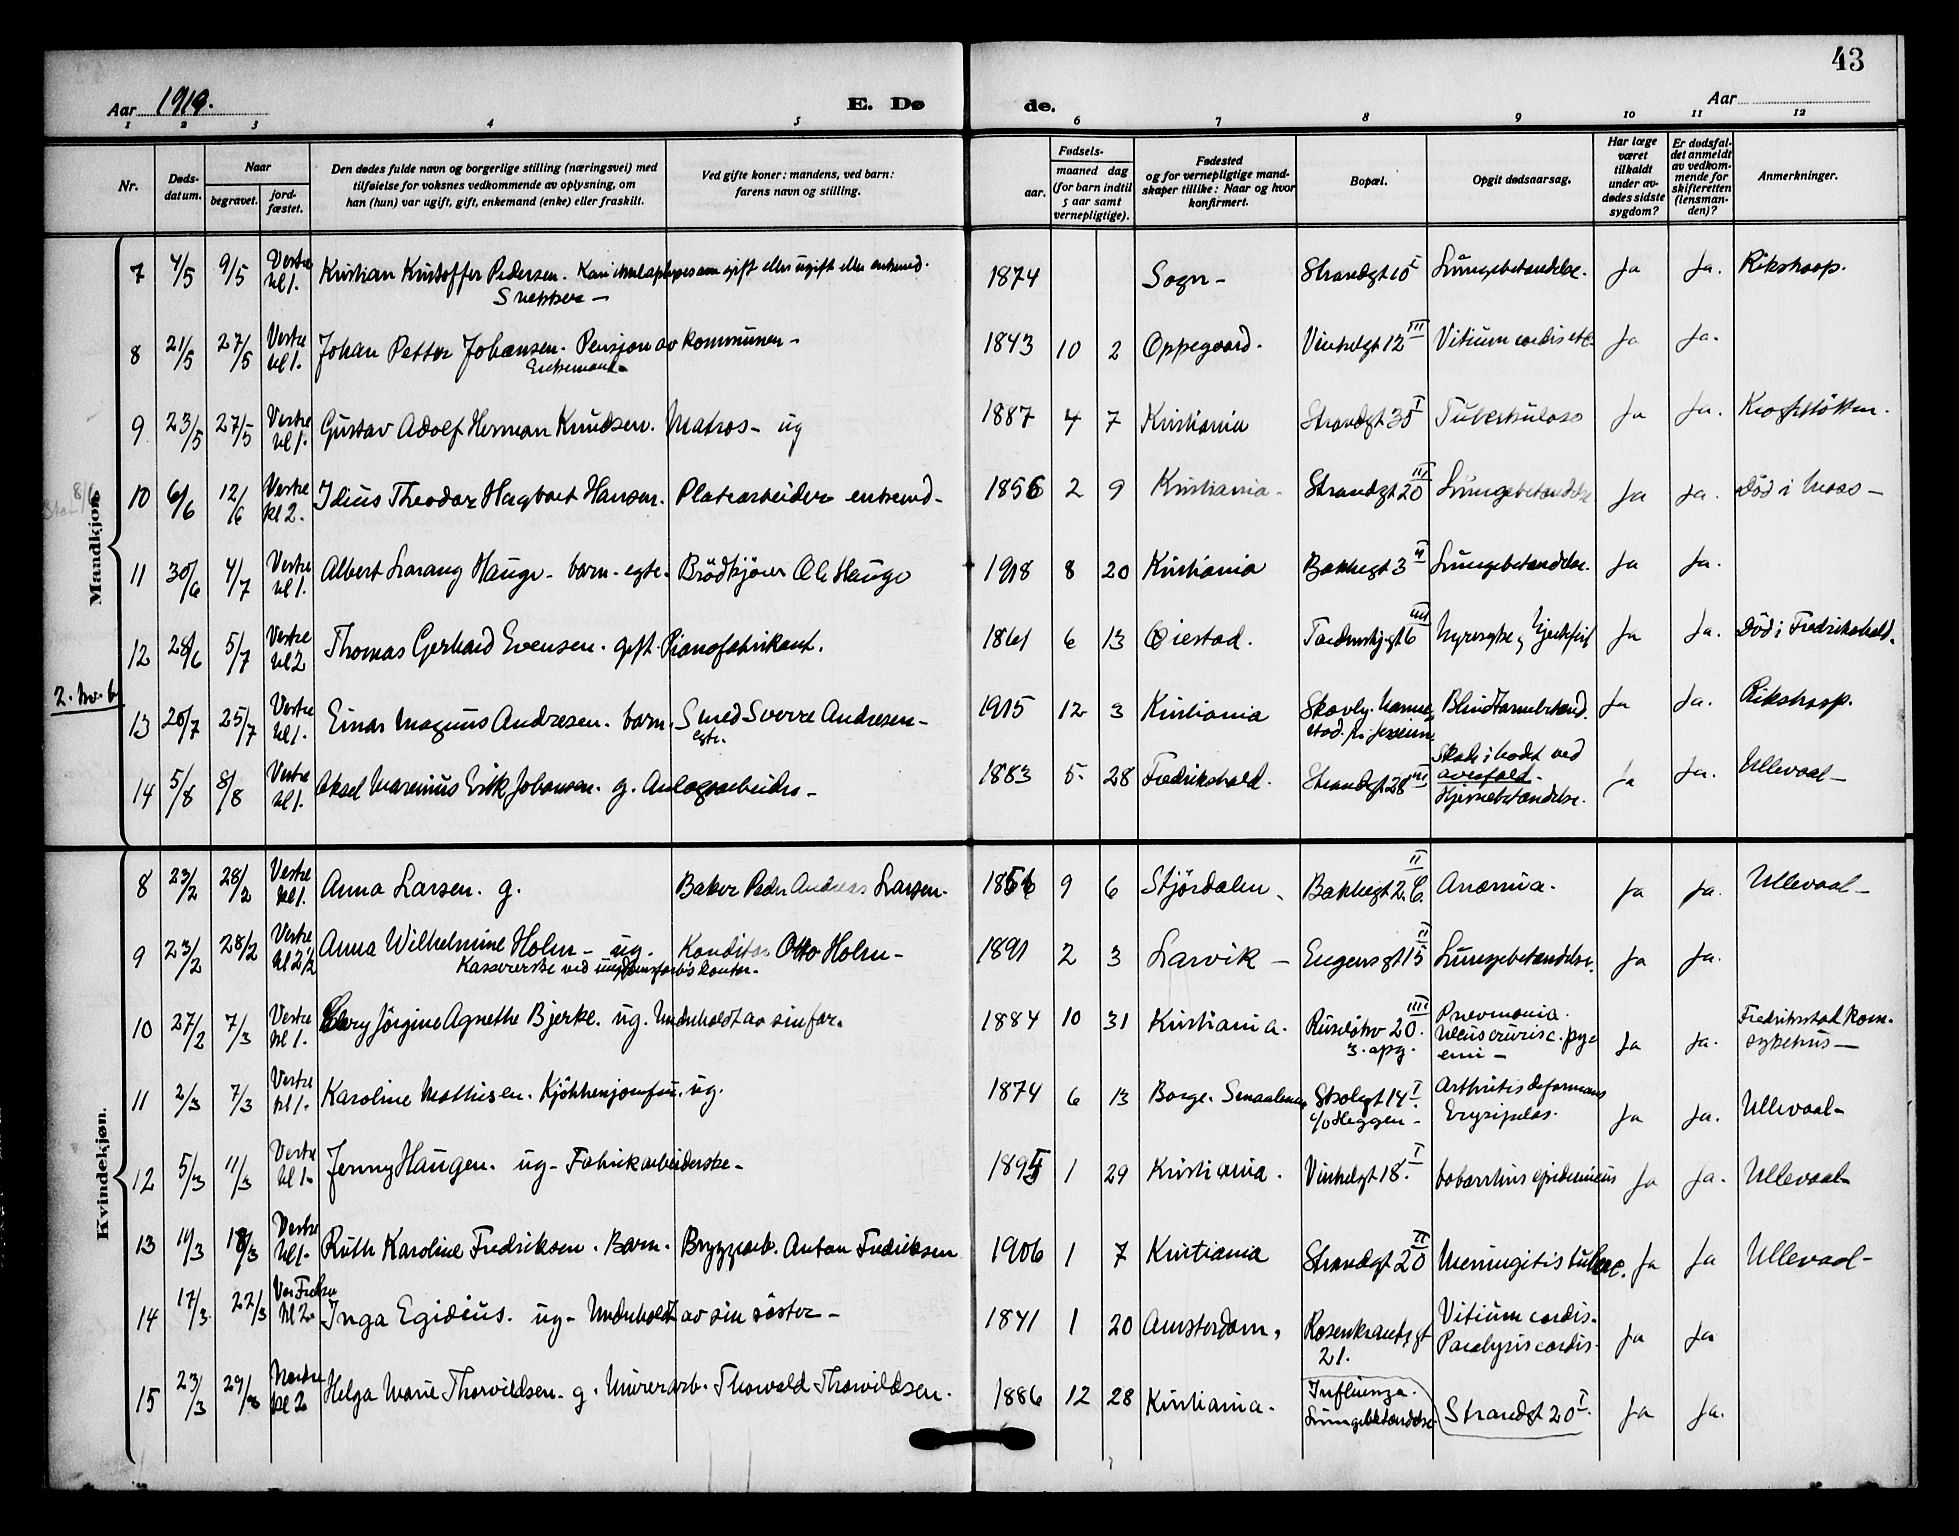 43
Aar 1919.
E. Dø
de.
Aar
1 2 3 4 5 6 7 8 9 10 11 12
Nr.
Døds-
datum.
Naar
begravet.
jord-
fæstet.
Den dødes fulde navn og borgerlige stilling (næringsvei) med
tilføielse for voksnes vedkommende av oplysning, om
han (hun) var ugift, gift, enkemand (enke) eller fraskilt.
Ved gifte koner: mandens, ved barn:
farens navn og stilling.
Fødsels-
aar.
maaned dag
(for barn indtil
5 aar samt
vernepligtige).
Fødested
og for vernepligtige mand-
skaper tillike: Naar og hvor
konfirmert.
Bopæl.
Opgit dødsaarsag.
Har læge
været
tilkaldt
under av-
dødes sidste
sygdom?
Er dødsfal-
det anmeldt
av vedkom-
mende for
skifteretten
(lensman-
den)?
Anmerkninger.
Mandkjøn
7 4/5 9/5 Vestre kl 1. Kristian Kristoffer Pedersen. gift eller ugift eller enkemd. 1874 Sogn - Strandgt 10 I Lungebetændelse. Ja Ja. Rikshosp.
Snekker -
8 21/5 27/5 Vestre kl 1. Johan Petter Johansen. Pensjon av kommunen - 1843 10 2 Oppegaard. Vinkelgt 12 III Vitium cordis etc. Ja Ja.
Enkemand -
9 23/5 27/5 Vestre kl 1. Gustav Adolf Herman Knudsen. Matros - ug 1887 4 7 Kristiania Strandgt 35 I Tuberkulose Ja Ja. Krohgstøtten.
8/6
10 6/6 12/6 Vestre kl 2. Julius Theodor Hagbart Hansen. Platearbeider enkemd - 1856 2 9 Kristiania - Strandgt 20 III Lungebetændelse Ja Ja. Død i Moss -
11 30/6 4/7 Vestre kl 1. Albert Hauge - barn - egte. Brødkjører Ole Hauge 1918 8 20 Kristiania Bakkegt 3 II Lungebetændelse. Ja Ja.
12 28/6 5/7 Vestre kl 2 Thomas Gerhard Evensen. gift. Pianofabrikant. 1861 6 13 Øiestad. 6 III Nyresyke, Hjertefeil Ja Ja. Død i Fredrikshald.
2. nv. b
13 20/7 25/7 Vestre kl 1. Einar Magnus Andresen. barn. Smed Sverre Andresen - 1915 12 3 Kristiania Skovly. Blindtarmbetænd. Ja Ja. Rikshosp.
egte.
14 5/8 8/8 Vestre kl 1. Aksel Marinius Erik Johansen. g. Anlægsarbeider - 1883 5 28 Fredrikshald. Strandgt 28 III Skade i hodt ved Ja Ja. Ullevaal -
overfald.
Hjernebetændelse.
Kvindekjøn.
8 23/2 28/2 Vestre kl 1. Anna Larsen. g. Baker Peder Andreas Larsen. 1856 9 6 Stjørdalen. Bakkegt 2 C. II Anæmia. Ja Ja. Ullevaal -
9 23/2 28/2 Vestre kl 2 1/2 Anna Wilhelmine Holm - ug. Konditor Otto Holm - 1891 2 3 Larvik - Eugensgt 15 II Lungebetændelse. Ja Ja.
Kassererske ved kontor.
10 27/2 7/3 Vestre kl 1. Jørgine Agnethe Bjerke. ug. Underholdt av sin far. 1884 10 31 Kristiania. Ruseløkv 20. III Pneumonia. Ja Ja. Fredriksstad kom.
3. opg. Ulcus cruris c. pyæ sykehus -
emi -
11 2/3 7/3 Vestre kl 1. Karoline Mathisen. Kjøkkenjomfru. ug. 1874 6 13 Borge. Smaalenene Skolegt 14 I. Arthritis deformans Ja Ja. Ullevaal -
c/o Heggen - Erysipelas.
12 5/3 11/3 Vestre kl 1. Jenny Haugen. ug - Fabrikarbeiderske - 1895 1 29 Kristiania. Vinkelgt 18. I epidemicus Ja Ja. Ullevaal -
13 11/3 18/3 Vestre kl 1. Ruth Karoline Fredriksen. Barn. Bryggearb. Anton Fredriksen 1906 1 7 Kristiania Strandgt 20 II Meningitis tuberc. Ja Ja Ullevaal -
14 17/3 22/3 Vor Frelser kl 2 Inga Egidius. ug - Underholdt av sin søster - 1841 1 20 Amsterdam. Rosenkrantzgt Vitium cordis. Ja Ja
21. Paralysis cordis.
15 23/3 29/3 Nordre kl 2 Helga Marie Thorvildsen. g. Murerarb. Thorvald Thorvildsen. 1886 12 28 Kristiania. Influenza. Strandgt 20 I. Ja Ja.
Lungebetændelse.